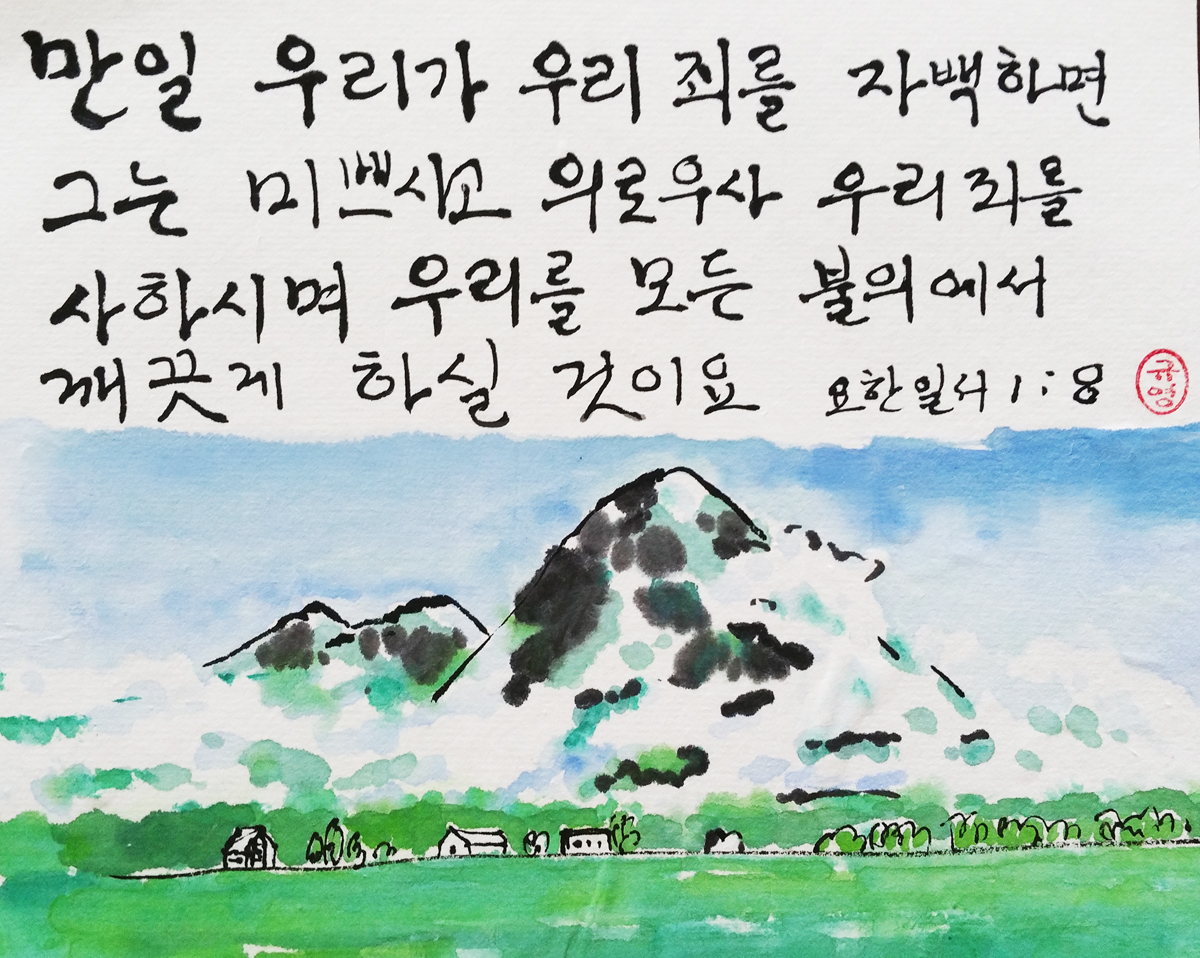 만일 우리가 우리 죄를 자백하면
그는 미쁘시고 의로우사 우리 죄를
사하시며 우리를 모든 불의에서
깨끗게 하실 것이요 요한일서 1:8
규영